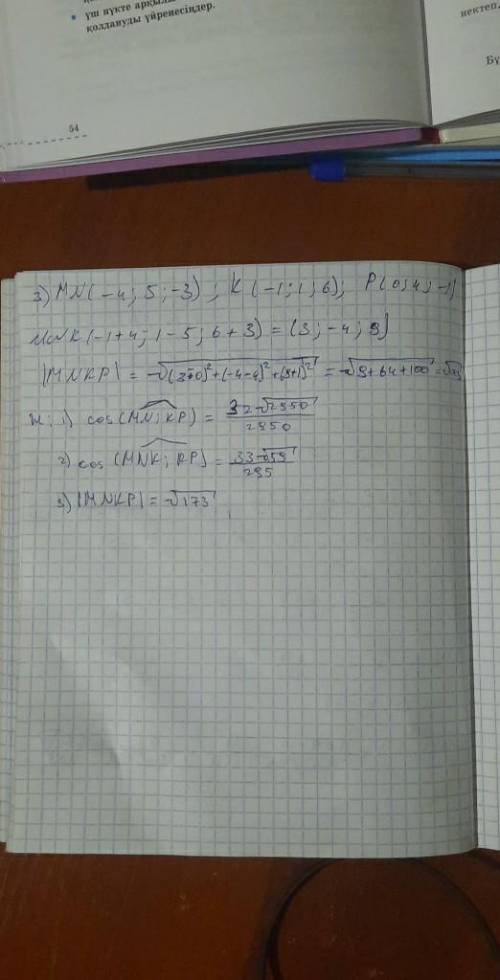 үш нүкте арқылы
қолдануды үйренесіңдер.
54
нектеп,
3) MN(-4; 5; -3) ; K(-1; 1; 6); P(0; 4; -1)
MNK(-1+4; 1-5; 6+3) = (3; -4; 9)
|MNKP| = √(3+0)²+(-4-4)²+(9+1)² = √9+64+100 =
1) cos(MN; KP) = 32√2950 / 2950
2) cos(MNK; KP) = 33√59 / 295
3) |MNKP| = √173